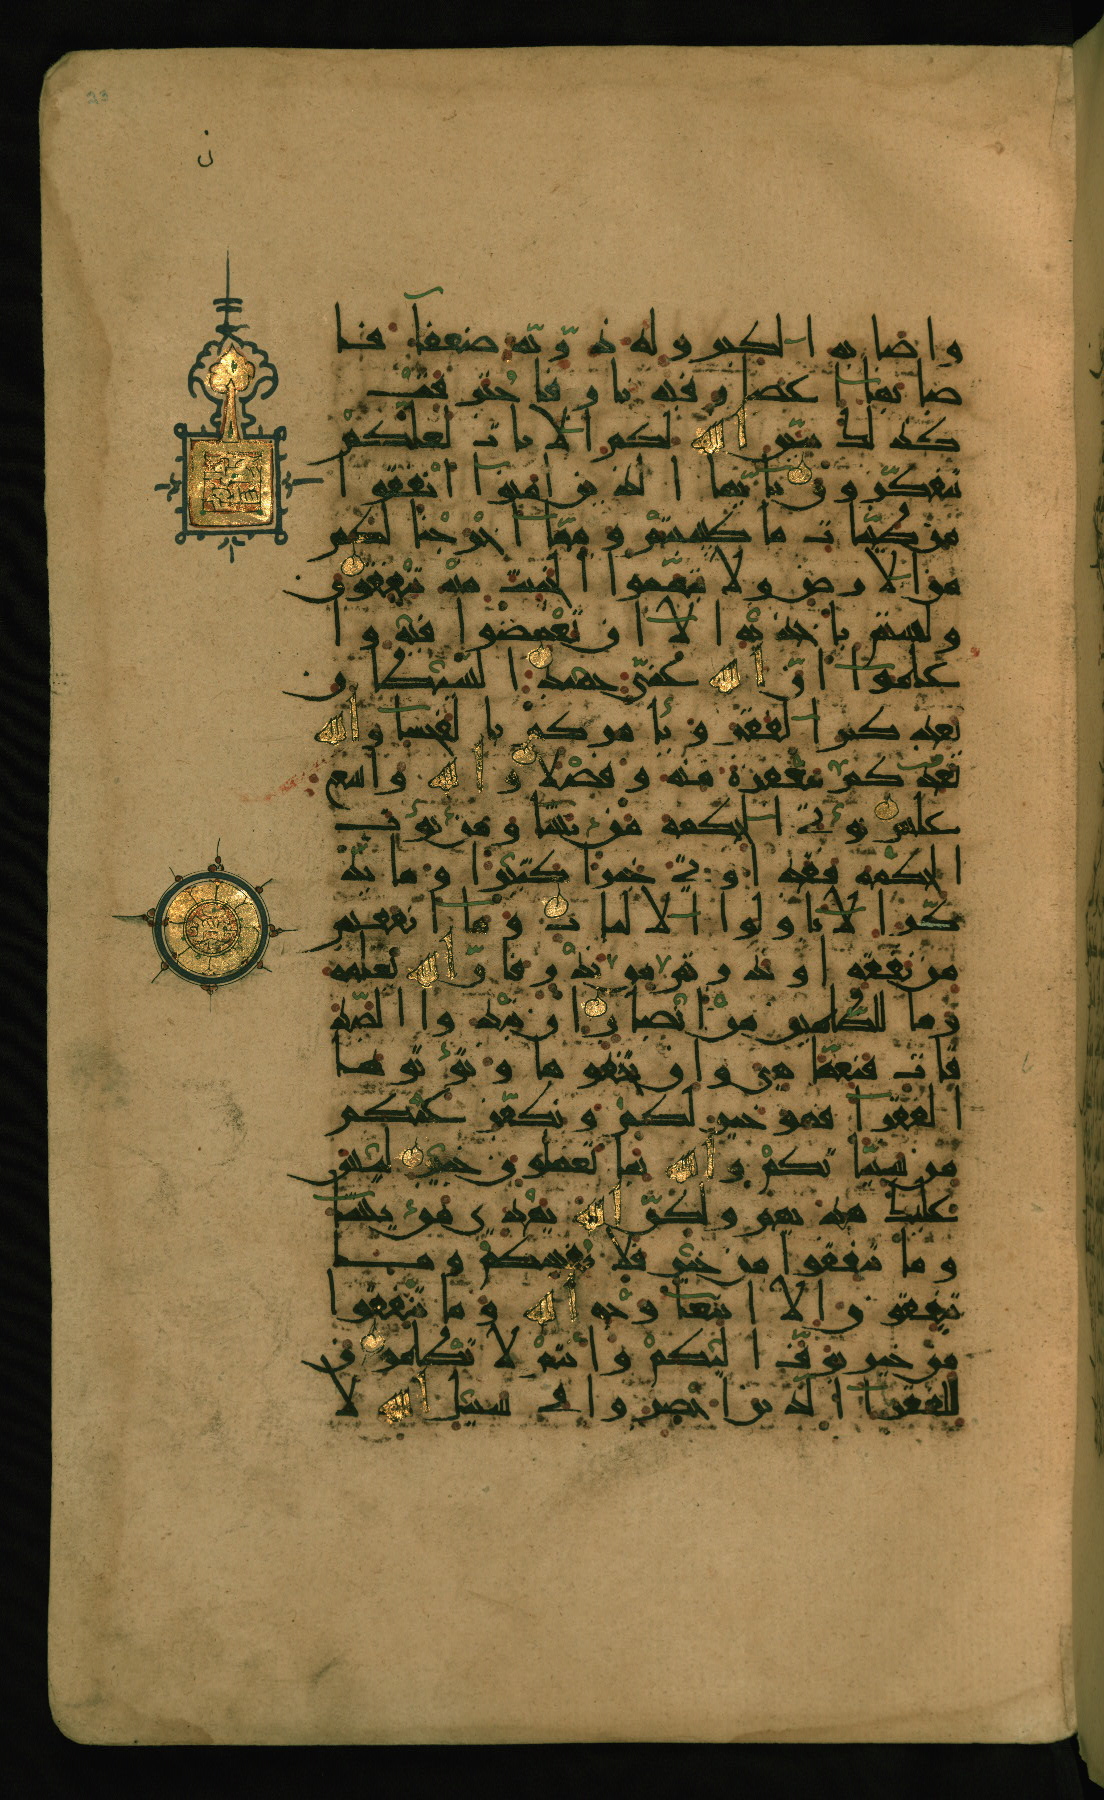 ن
وأصابه الكبر وله ذرية ضعفآء فأ
صابها إعصار فيه نار فاحترقت
كذلك يبين الله لكم الآيات لعلكم
تتفكرون يا أيها الذين آمنوا أنفقوا
من طيبات ما كسبتم ومما أخرجنا لكم
من الأرض ولا تيمموا الخبيث منه تنفقون
ولستم بآخذيه إلا أن تغمضوا فيه وا
علموا أن الله غني حميد الشيطان
يعدكم الفقر ويأمركم بالفحشا والله
يعدكم مغفرة منه وفضلا والله واسع
عليم يؤتي الحكمة من يشا ومن يؤت
الحكمة فقد أوتي خيرا كثيرا وما يذ
كر إلا أولوا الألباب وما أنفقتم
من نفقة أو نذرتم من نذر فإن الله يعلمه
وما للظالمين من أنصار إن تبدوا الصد
قات فنعما هي وإن تخفوها وتؤتوها
الفقرا فهو خير لكم ونكفر عنكم
من سيئاتكم والله بما تعملون خبير ليس
عليك هديهم ولكن الله يهدي من يشا
وما تنفقوا من خير فلأنفسكم وما
تنفقون إلا ابتغا وجه الله وما تنفقوا
من خير يوف إليكم وأنتم لا تظلمون
للفقرا الذين أحصروا في سبيل الله لا